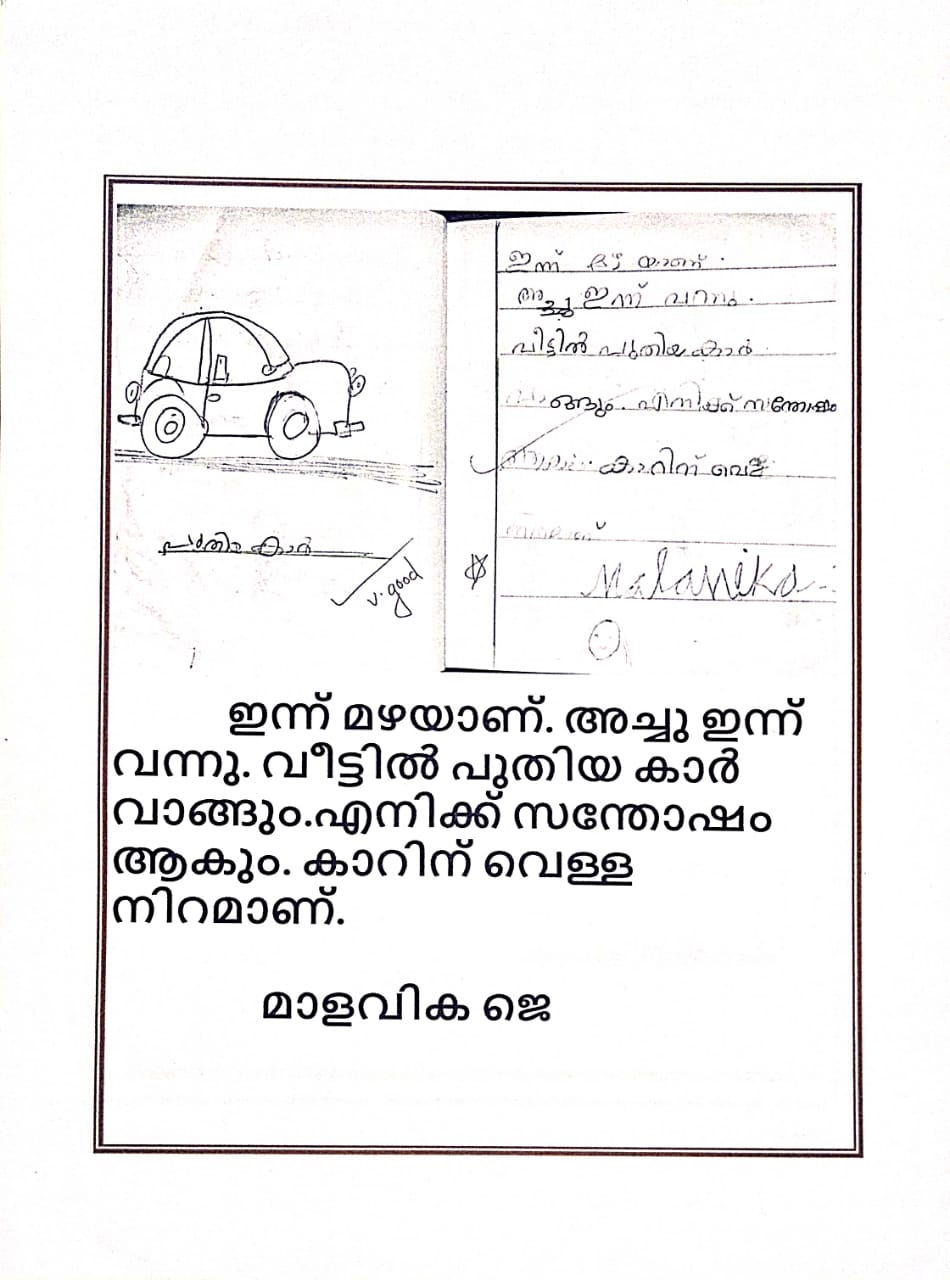 പുതിയ കാർ
v.good
ഇന്ന് മഴ യാണ്.
അച്ചു ഇന്ന് വന്നു.
വീട്ടിൽ പുതിയ കാർ
വാങ്ങും. എനിക്ക് സന്തോഷം
കാറിന് വെള്ള
Malavika
ഇന്ന് മഴയാണ്. അച്ചു ഇന്ന്
വന്നു. വീട്ടിൽ പുതിയ കാർ
വാങ്ങും.എനിക്ക് സന്തോഷം
ആകും. കാറിന് വെള്ള
നിറമാണ്.
മാളവിക ജെ